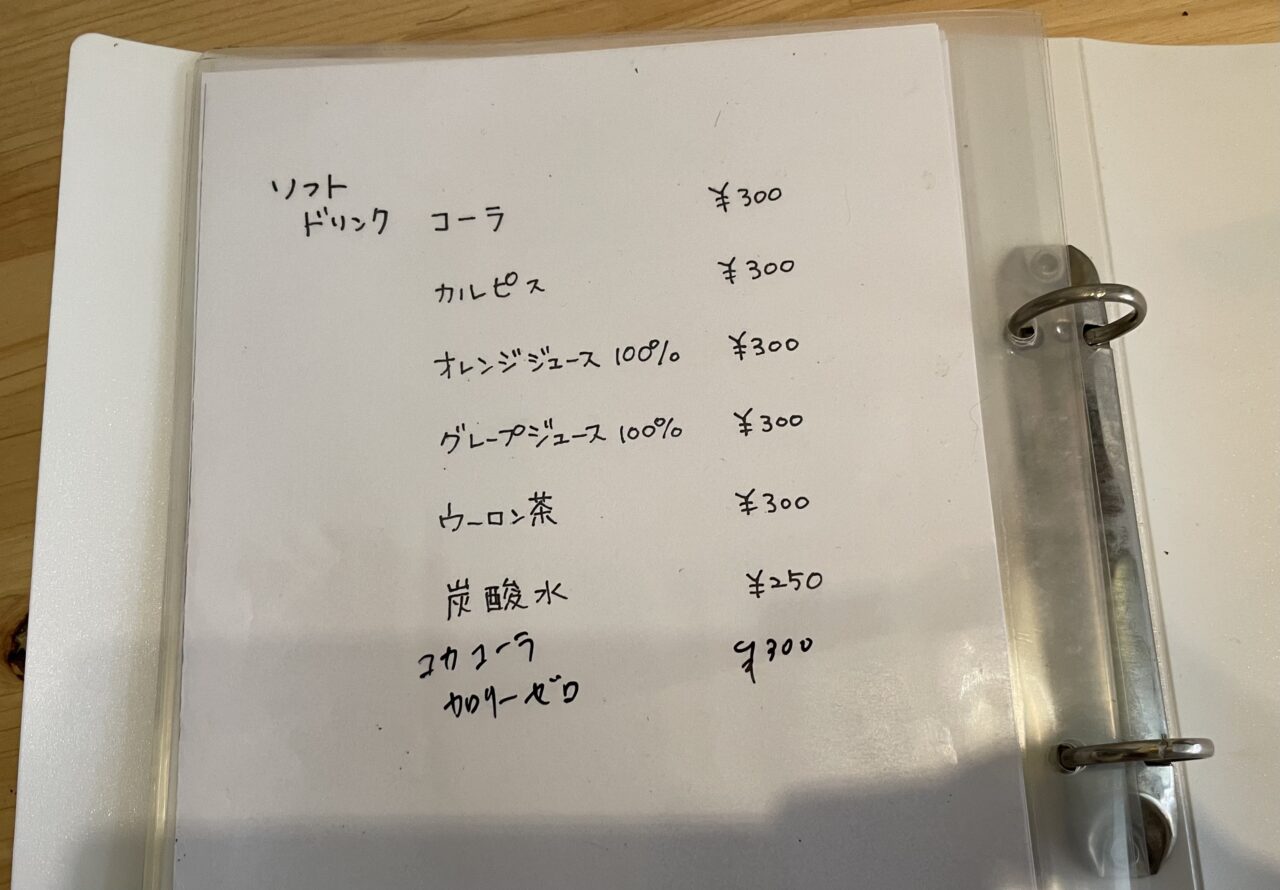 ソフト
ドリンク コーラ ¥300
カルピス ¥300
オレンジジュース 100% ¥300
グレープジュース 100% ¥300
ウーロン茶 ¥300
炭酸水 ¥250
コカコーラ ¥300
カロリーゼロ